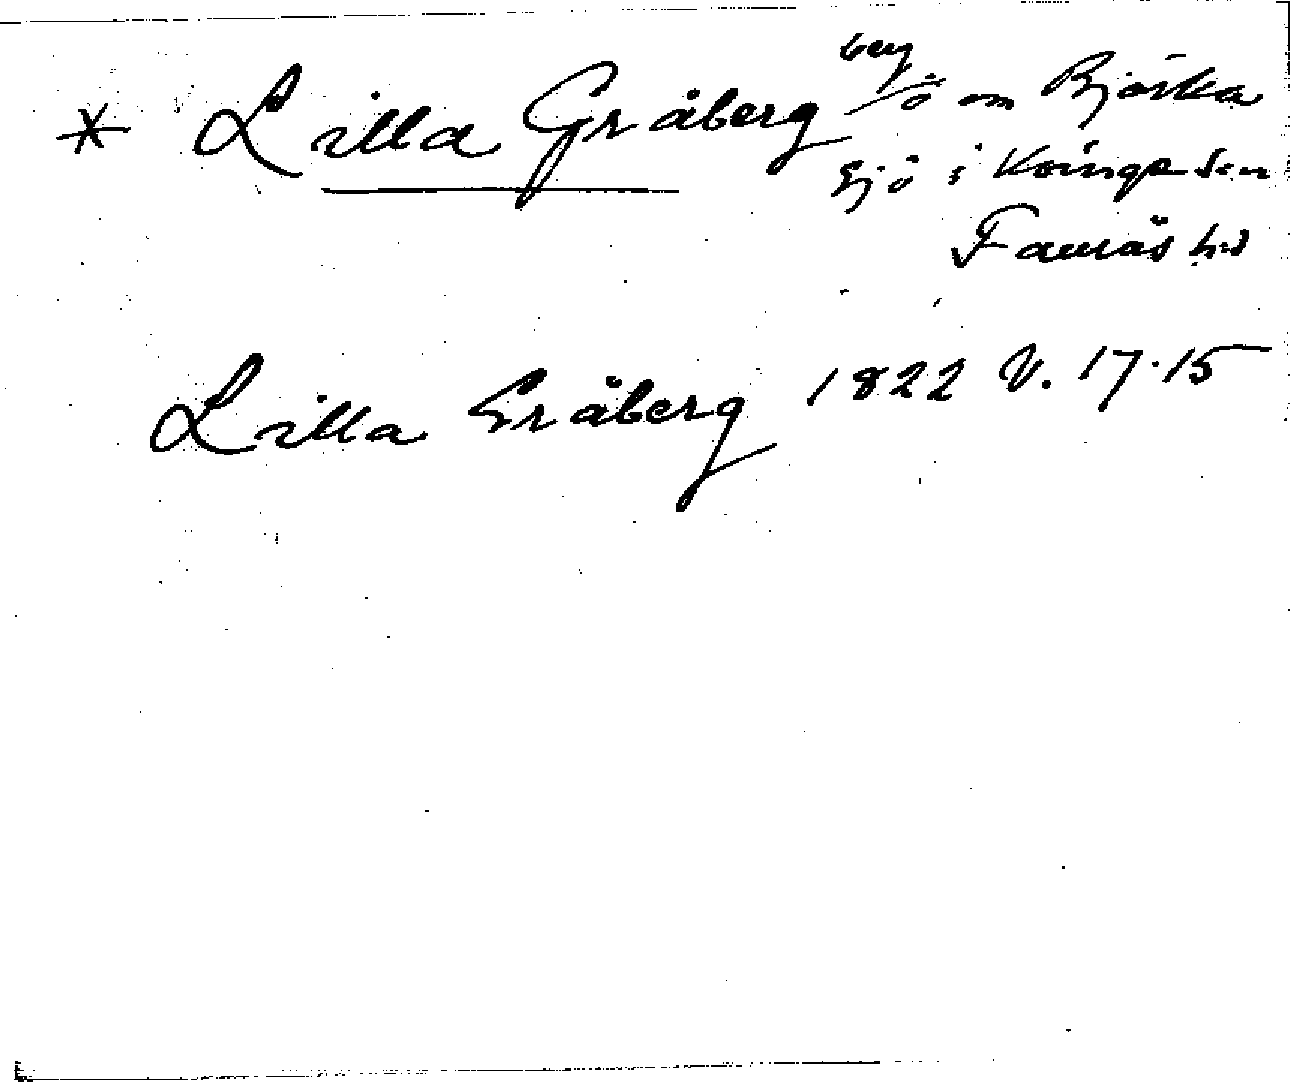 * Lilla Gråberg berg ö om Björka
sjö i Köinge sn
Faurås hd
Lilla Gråberg 1822 V. 17.15